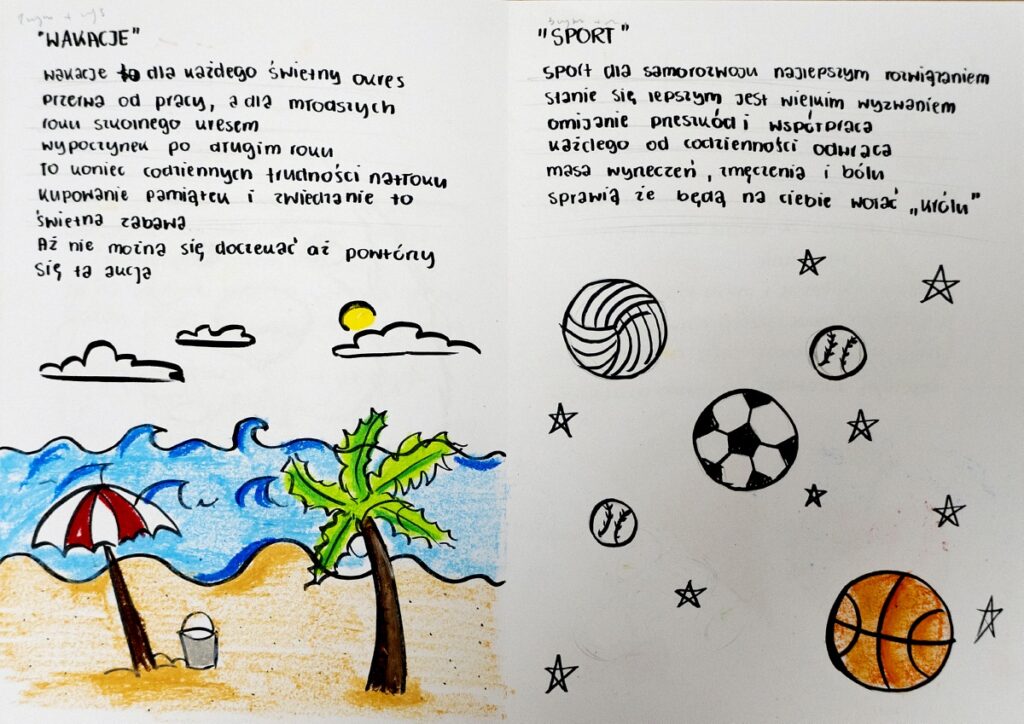 "WAKACJE"
wakacje to dla każdego świetny okres
przerwa od pracy, a dla młodszych
roku szkolnego kresem
wypoczynek po drugim roku
to koniec codziennych trudności natłoku
kupowanie pamiątek i zwiedzanie to
świetna zabawa
Aż nie można się doczekać aż powtórzy
się ta akcja
"SPORT"
sport dla samorozwoju najlepszym rozwiązaniem
stanie się lepszym jest wielkim wyzwaniem
omijanie przeszkód i współpraca
każdego od codzienności odwraca
masa wyrzeczeń, zmęczenia i bólu
sprawią że będą na ciebie wołać „królu"